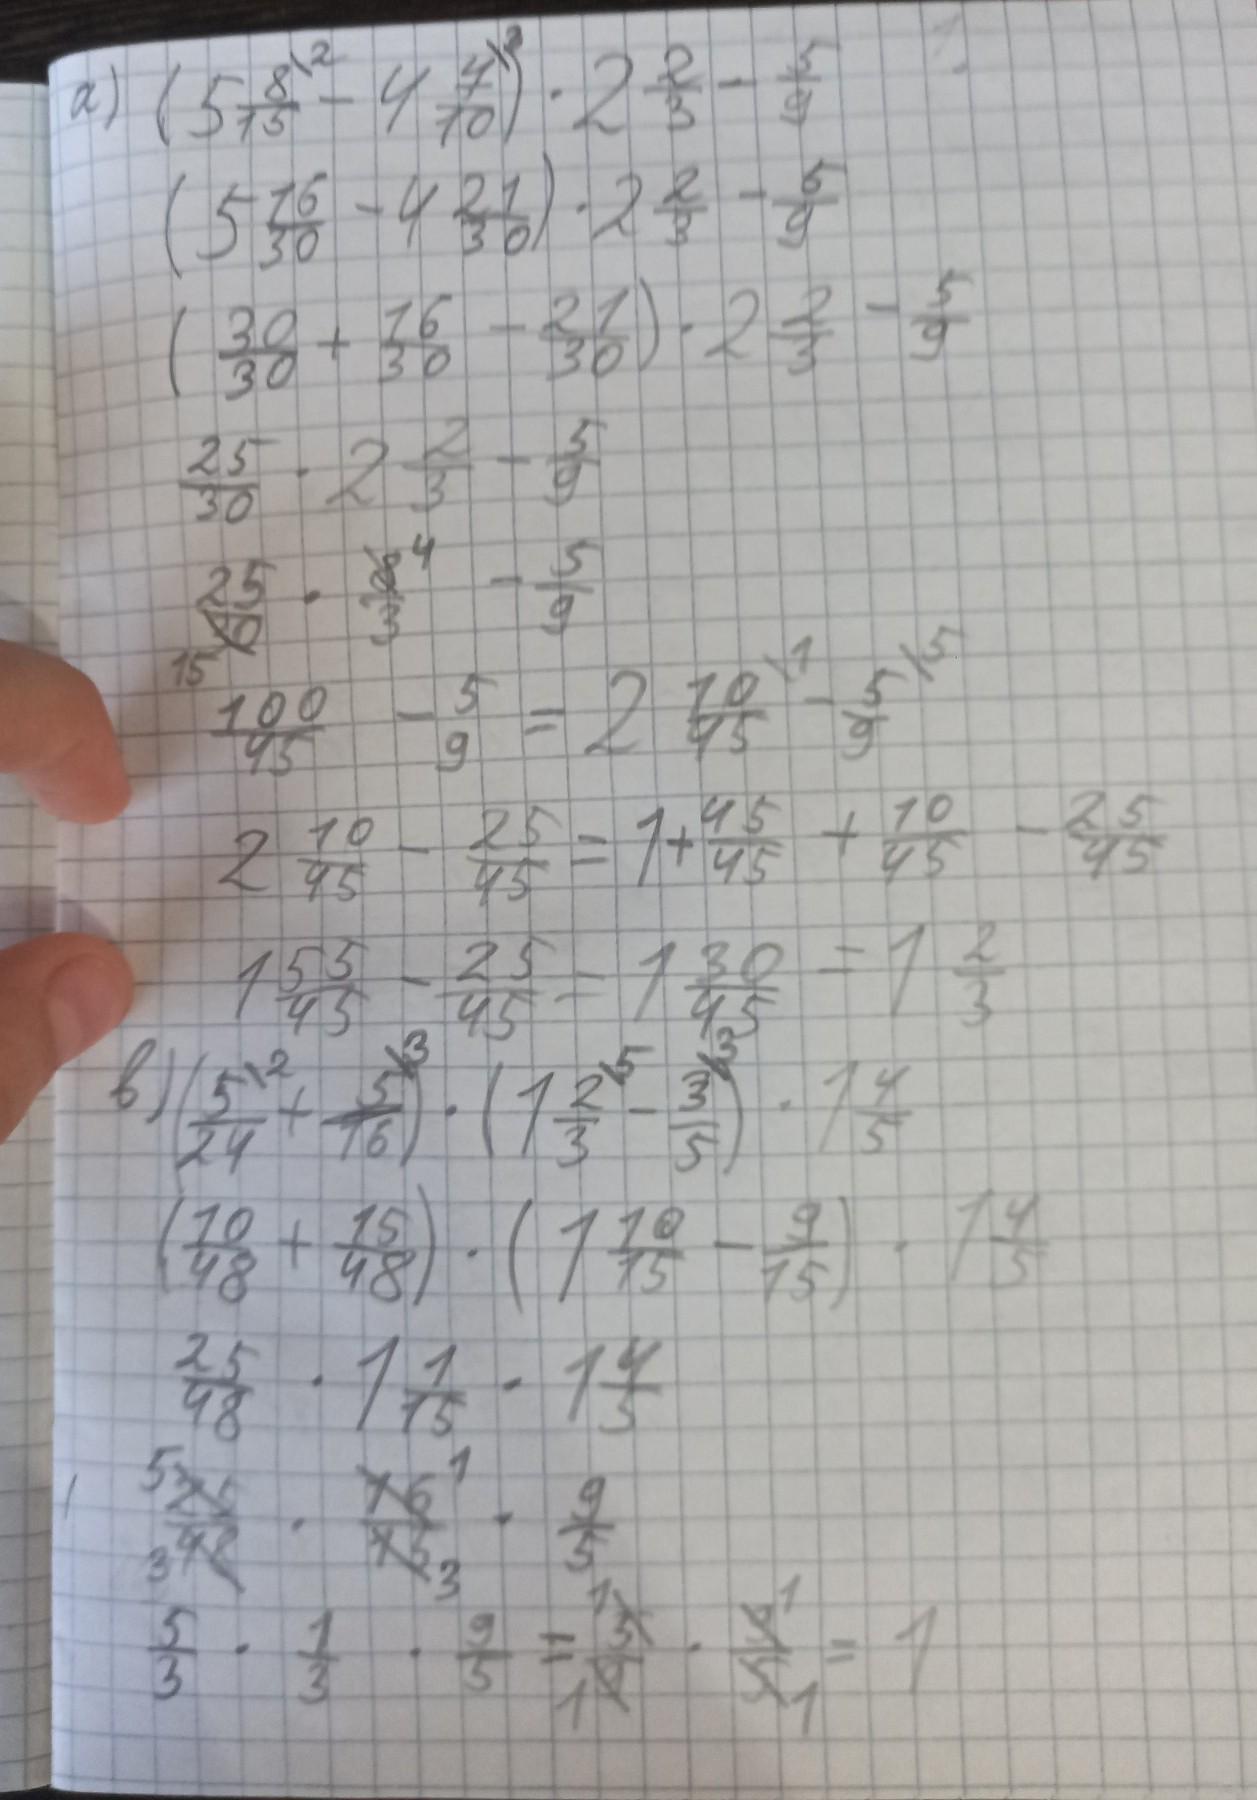 а) (5 8/15\2 - 4 7/10\3) · 2 2/3 - 5/9
(5 16/30 - 4 21/30) · 2 2/3 - 5/9
(30/30 + 16/30 - 21/30) · 2 2/3 - 5/9
25/30 · 2 2/3 - 5/9
25/30 15 · 8/3 4 - 5/9
100/45 - 5/9 = 2 10/45\1 - 5/9\5
2 10/45 - 25/45 = 1 + 45/45 + 10/45 - 25/45
1 55/45 - 25/45 = 1 30/45 = 1 2/3
в) (5/24\2 + 5/16\3) · (1 2/3\5 - 3/5\3) · 1 4/5
(10/48 + 15/48) · (1 10/15 - 9/15) · 1 4/5
25/48 · 1 1/15 · 1 4/5
5 25/48 3 · 16/15 1 3 · 9/5
5/3 · 1/3 · 9/5 = 1 5/9 1 · 9/5 1 1 = 1